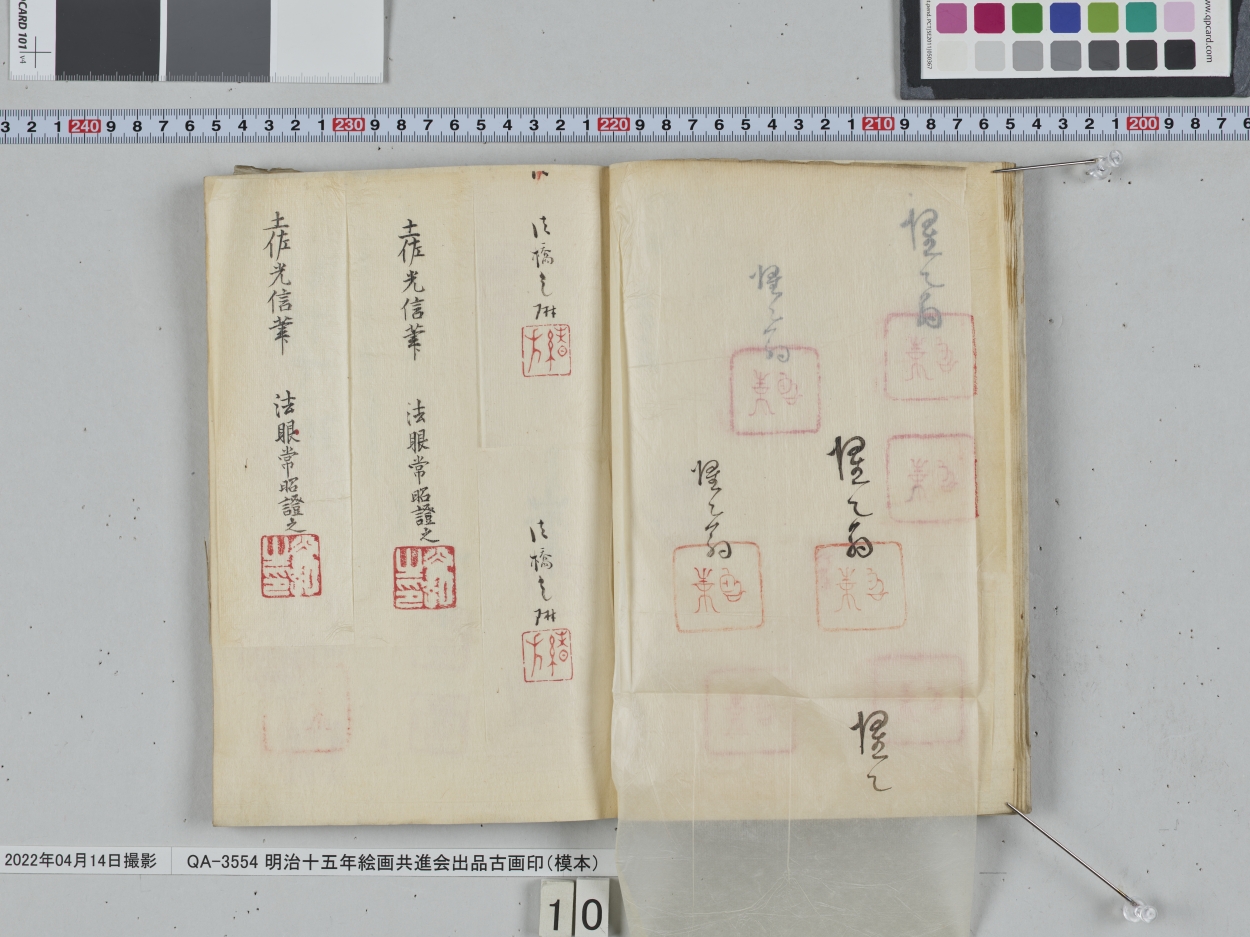 CARD 101 v4
www.qpcard.com
3 2 1 240 9 8 7 6 5 4 3 2 1 230 9 8 7 6 5 4 3 2 1 220 9 8 7 6 5 4 3 2 1 210 9 8 7 6 5 4 3 2 1 200 9 8 7 6
惺々翁
惺々翁
惺々翁
惺々翁
惺々
法橋光琳
方緒
法橋光琳
方緒
土佐光信筆 法眼常昭證之
土佐光信筆 法眼常昭證之
2022年04月14日撮影
QA-3554 明治十五年絵画共進会出品古画印(模本)
10